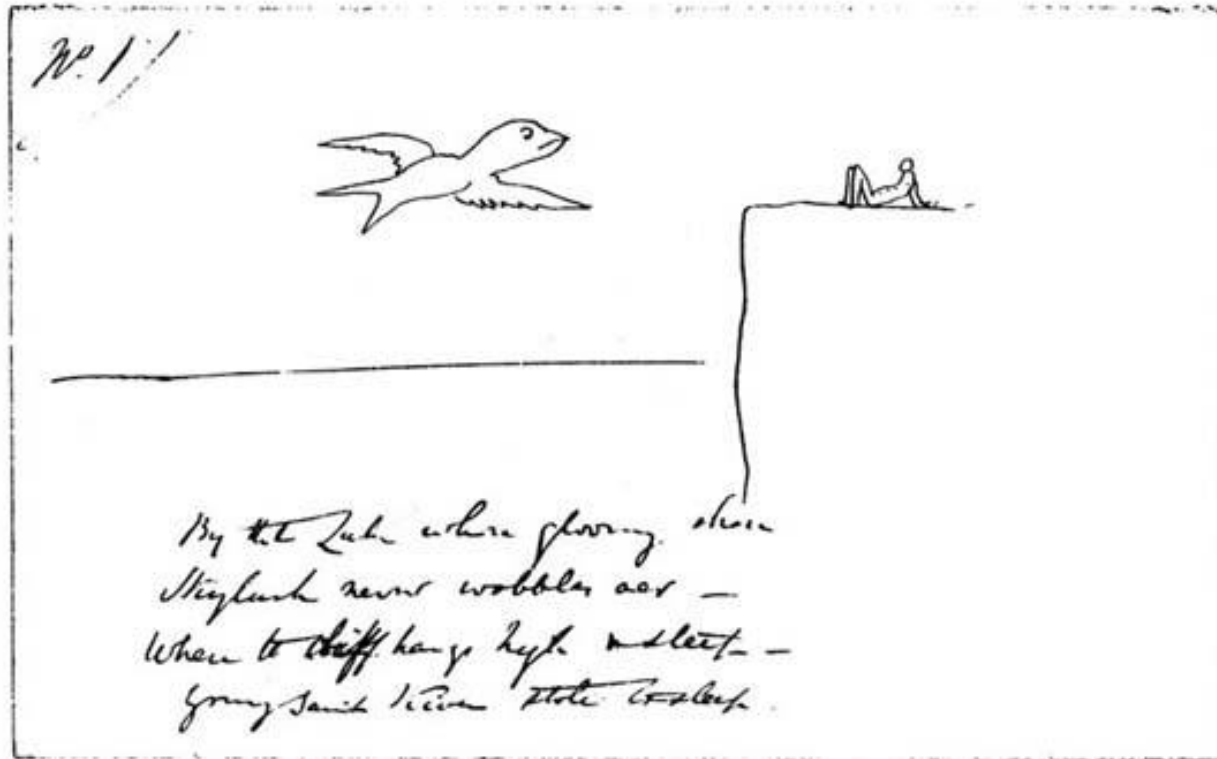 No. 1
By that Lake whose gloomy shore
Skylark never warbles oer —
Where the cliff hangs high & steep — —
Young Saint Kevin stole to sleep.